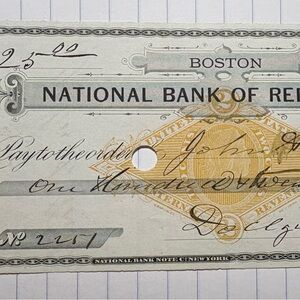 25 00
BOSTON
NATIONAL BANK OF RE
Pay to the order
John
One Hundred & Twen
No 2251
NATIONAL BANK NOTE CO NEW YORK